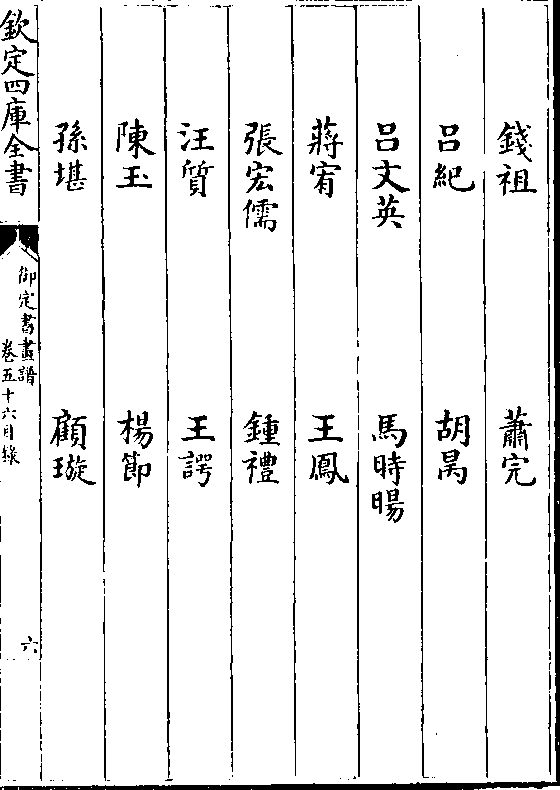 錢祖　蕭完
呂紀　胡昺
呂文英　馬時暘
蔣宥　王鳳
張宏儒　鍾禮
汪質　王諤
陳玉　楊節
孫堪　顧璇
欽定四庫全書
御定書畫譜
卷五十六目錄
六